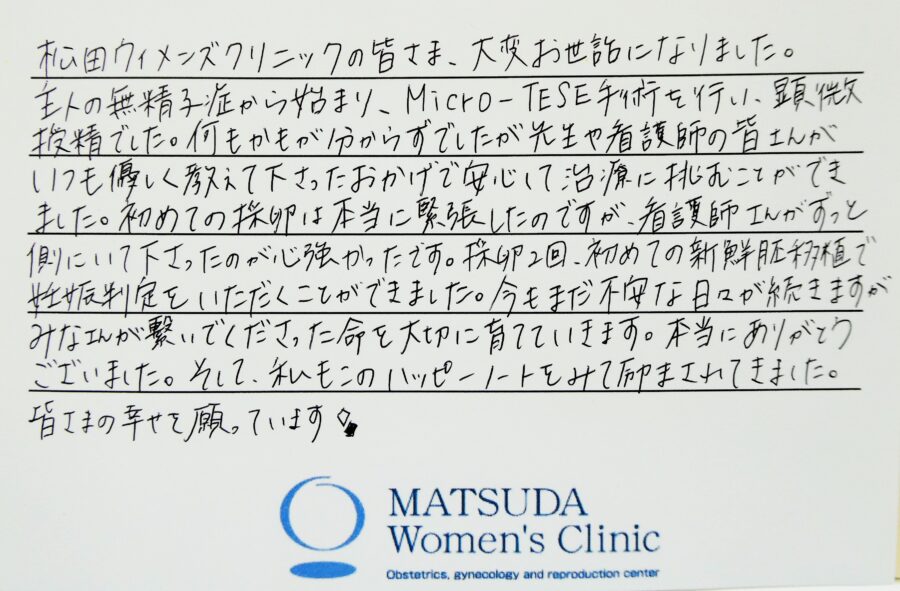 松田ウィメンズクリニックの皆さま、大変お世話になりました。
主人の無精子症から始まり、Micro-TESE手術を行い、顕微
授精でした。何もかもが分からずでしたが先生や看護師の皆さんが
いつも優しく教えて下さったおかげで安心して治療に挑むことができ
ました。初めての採卵は本当に緊張したのですが、看護師さんがずっと
側にいて下さったのが心強かったです。採卵2回、初めての新鮮胚移植で
妊娠判定をいただくことができました。今もまだ不安な日々が続きますが
みなさんが繋いでくださった命を大切に育てていきます。本当にありがとう
ございました。そして、私もこのハッピーノートをみて励まされてきました。
皆さまの幸せを願っています
MATSUDA
Women's Clinic
Obstetrics, gynecology and reproduction center